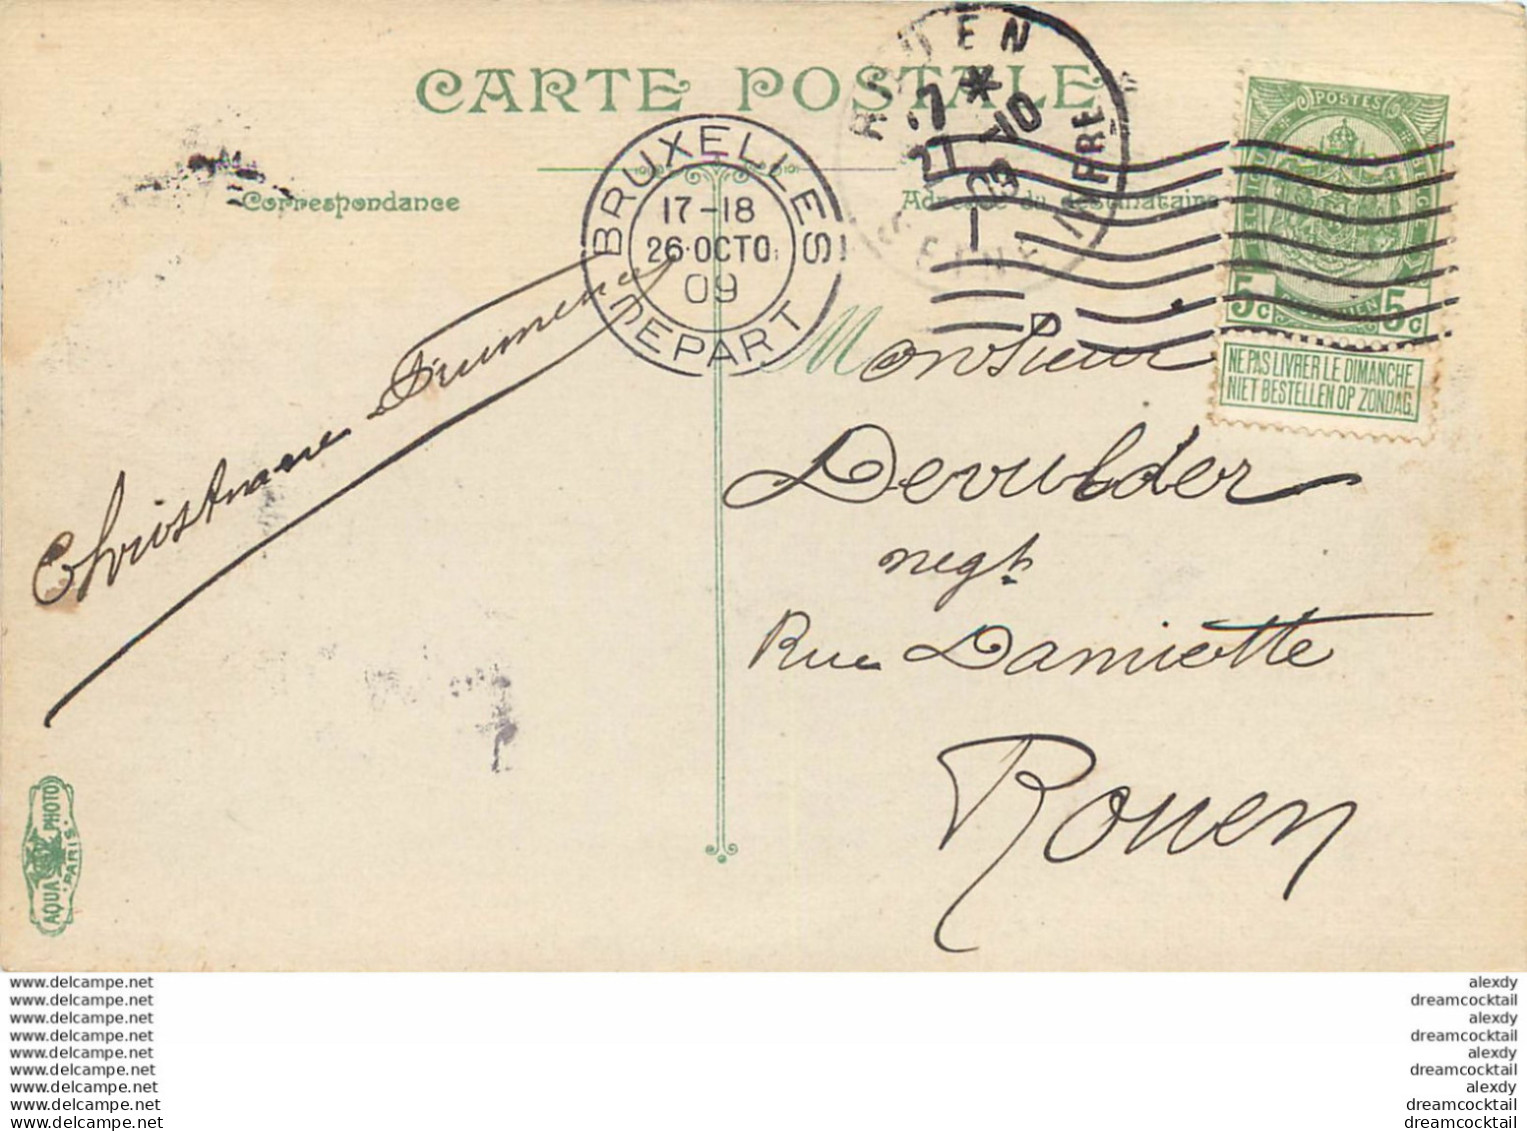 CARTE POSTALE
Correspondance
Adresse du destinataire
BRUXELLES
17-18
26·OCTO
09
DEPART
ROUEN
7 *
27 -10
09
SEINE INFRE
POSTES
5c 5c
NE PAS LIVRER LE DIMANCHE
NIET BESTELLEN OP ZONDAG.
Monsieur
Devulder
negt
Rue Damiette
Rouen
AQUA PHOTO
PARIS.
www.delcampe.net
www.delcampe.net
www.delcampe.net
www.delcampe.net
www.delcampe.net
www.delcampe.net
www.delcampe.net
www.delcampe.net
www.delcampe.net
alexdy
dreamcocktail
alexdy
dreamcocktail
alexdy
dreamcocktail
alexdy
dreamcocktail
dreamcocktail